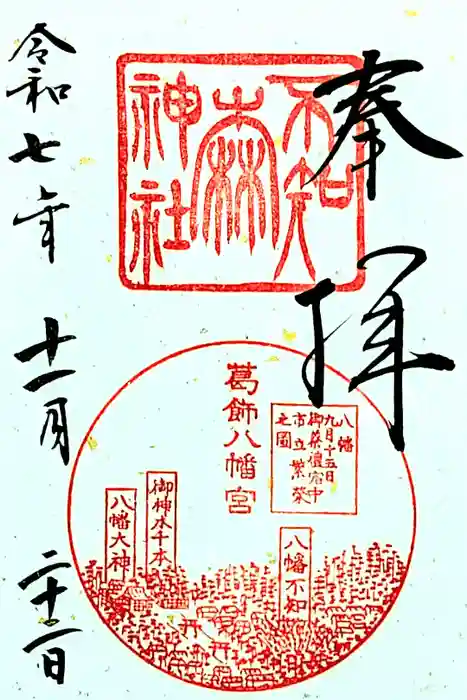 奉拝
不知
森
神社
葛飾八幡宮
八幡
九月十五日
御祭礼宮中
市立繁栄
之図
御神木千本
八幡大神
八幡不知
令和七年
十一月
二十二日